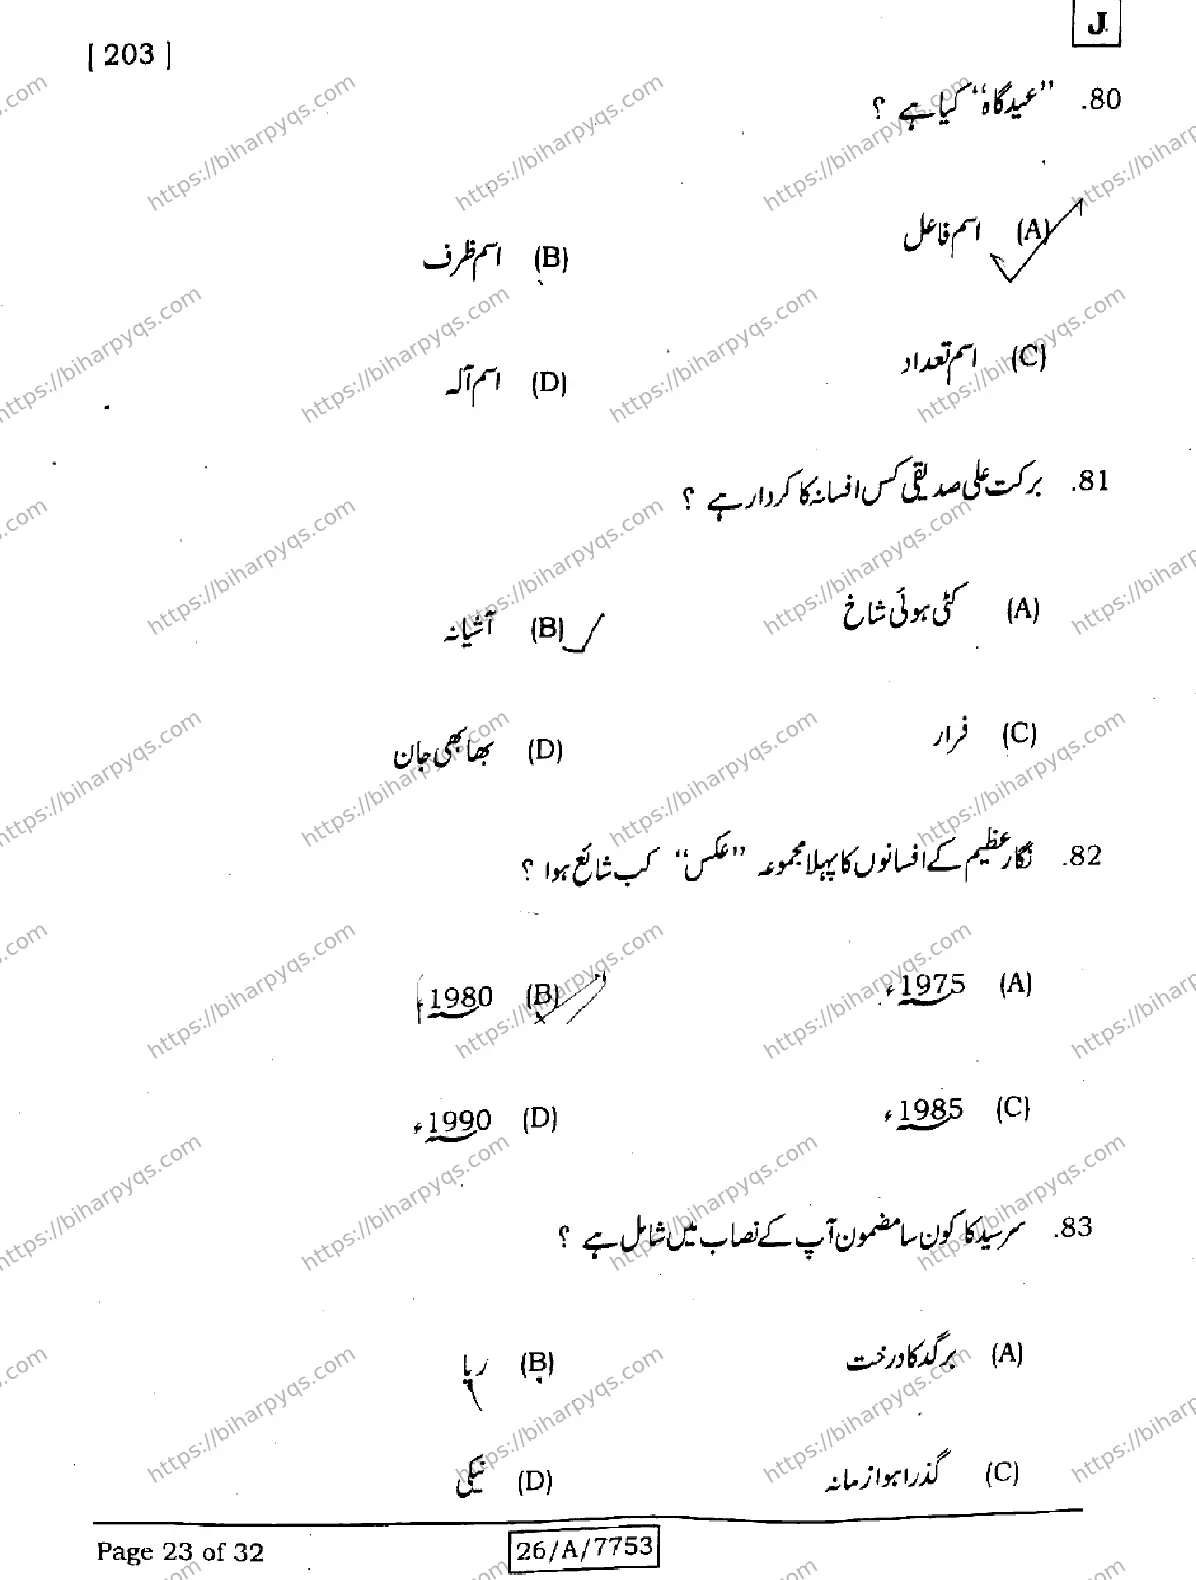 J
[ 203 ]
80. ”عیدگاہ“ کیا ہے ؟
(A) اسم فاعل
(B) اسم ظرف
(C) اسم تعداد
(D) اسم آلہ
81. برکت علی صدیقی کس افسانہ کا کردار ہے ؟
(A) کٹی ہوئی شاخ
(B) آشیانہ
(C) فرار
(D) بھابھی جان
82. نگار عظیم کے افسانوں کا پہلا مجموعہ ”عکس“ کب شائع ہوا ؟
(A) 1975ء
(B) 1980ء
(C) 1985ء
(D) 1990ء
83. سرسید کا کون سا مضمون آپ کے نصاب میں شامل ہے ؟
(A) برگد کا درخت
(B) ریا
(C) گذرا ہوا زمانہ
(D) نیکی
Page 23 of 32
26/A/7753
https://biharpyqs.com